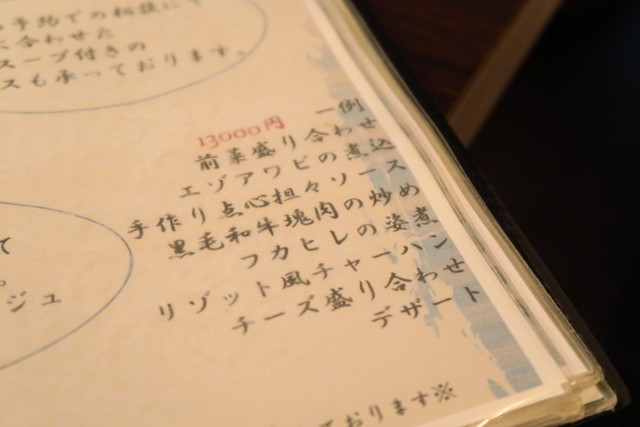 予約での相談にて
に合わせた
スープ付きの
スも承っております。
13000円 一例
前菜盛り合わせ
エゾアワビの煮込
手作り点心担々ソース
黒毛和牛塊肉の炒め
フカヒレの姿煮
リゾット風チャーハン
チーズ盛り合わせ
デザート
て
。
ージュ
ております※